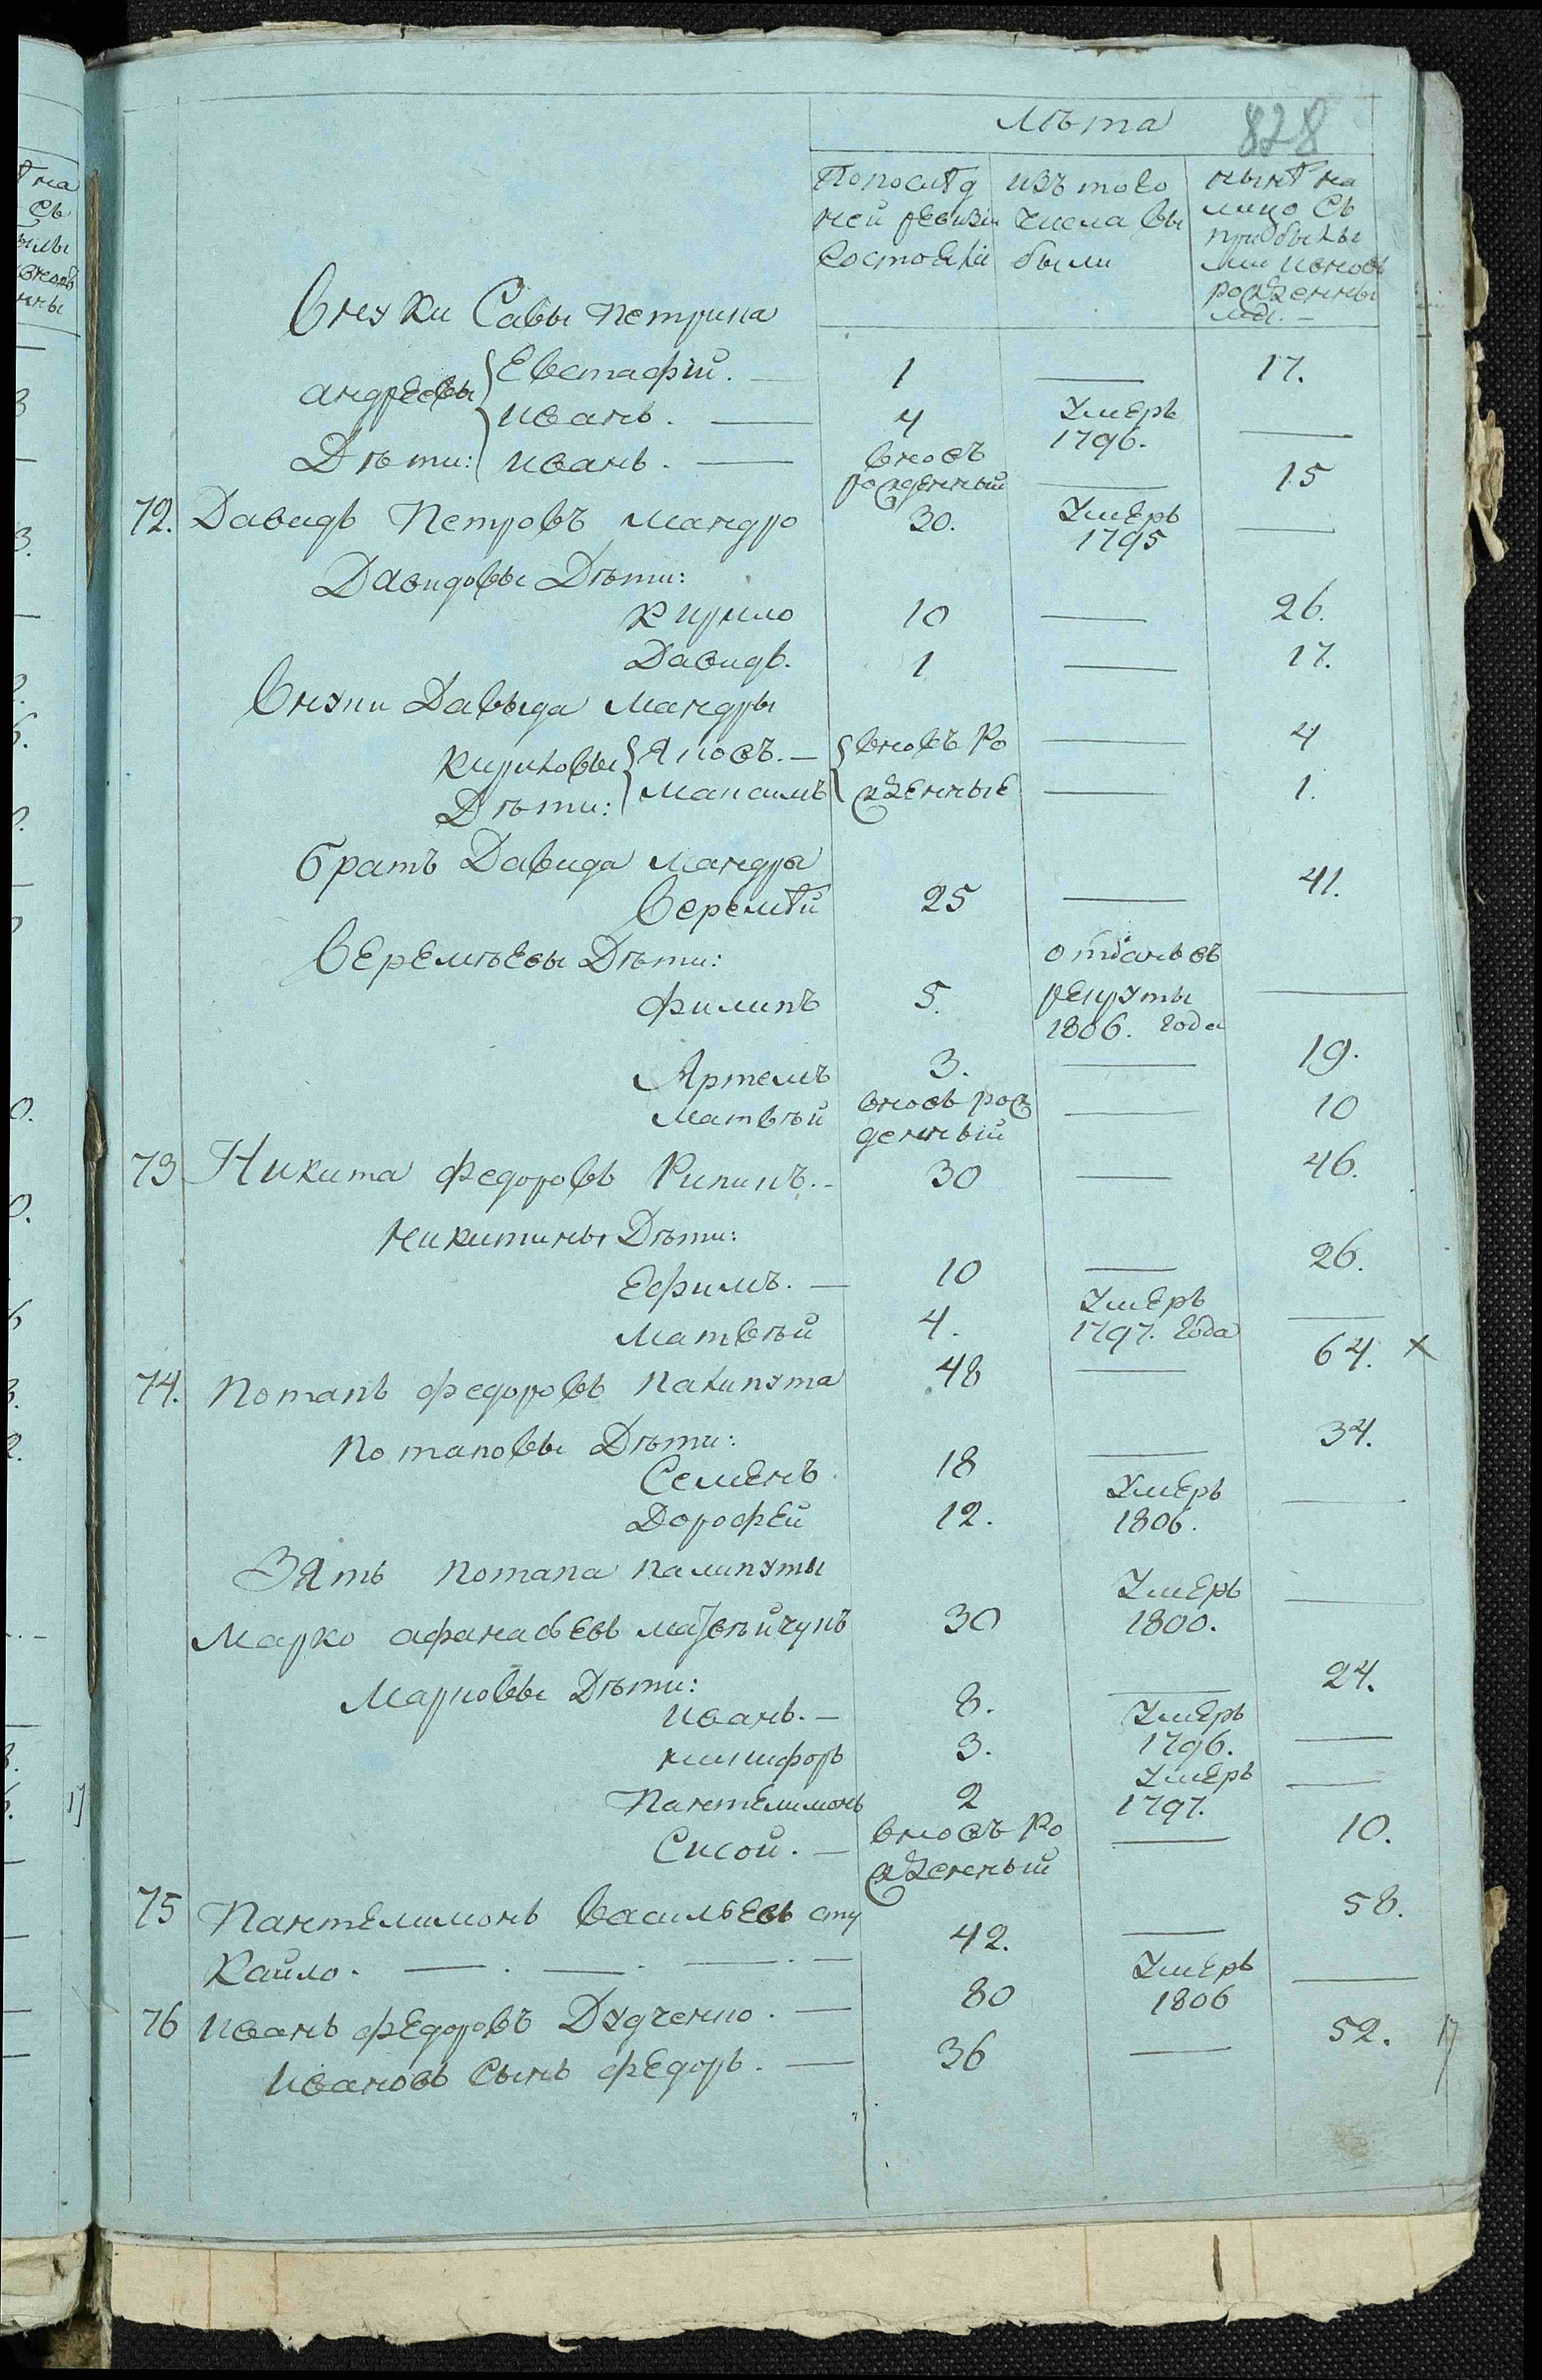 лѣта 828
Попослѣд изъ того нынѣ на
ней ревизіи числа вы лицо съ
состояли были прибылы
ми ивновь
рожденны
ми. —
Внуки Савы петрика
андреевы Евстафій. — 1 — 17.
Иванъ. — 4 Умеръ 1796. —
Дѣти: Иванъ. — вновь рожденный — 15
72. Давидъ Петровъ Мандро 30. Умеръ 1795 —
Давидовы Дѣти:
Кирило 10 — 26.
Давидъ. 1 — 17.
Внуки Давыда Мандры
Кириловы Яковъ. — вновь ро — 4
Дѣти: Макаимъ жденные — 1.
братъ Давида Мандры
Веремѣй 25 — 41.
Веремѣевы Дѣти:
филипъ 5. отданъ въ рекруты 1806. года —
Артемъ 3. — 19.
Матвѣй вновь рожденный — 10
73 Никита Федоровъ Рипипъ. — 30 — 46.
Никитины Дѣти:
Ефимъ. — 10 — 26.
Матвѣй 4. Умеръ 1797. года —
74. Потапъ Федоровъ палипута 48 — 64. x
Потаповы Дѣти:
Семенъ 18 — 34.
Дорофей 12. Умеръ 1806. —
Зять потапа палипуты
Марко афанасьевъ матвѣйчукъ 30 Умеръ 1800. —
Марковы Дѣти:
Иванъ. — 8. — 24.
никифоръ 3. Умеръ 1796. —
Пантелимонъ 2 Умеръ 1797. —
Сисой. — вновь рожденный — 10.
75 Пантелимонъ Васильевъ сту
кайло. — . — . — . — 42. — 58.
76 Иванъ федоровъ Дудченко. — 80 Умеръ 1806 —
Ивановъ Сынъ федоръ. — 36 — 52.